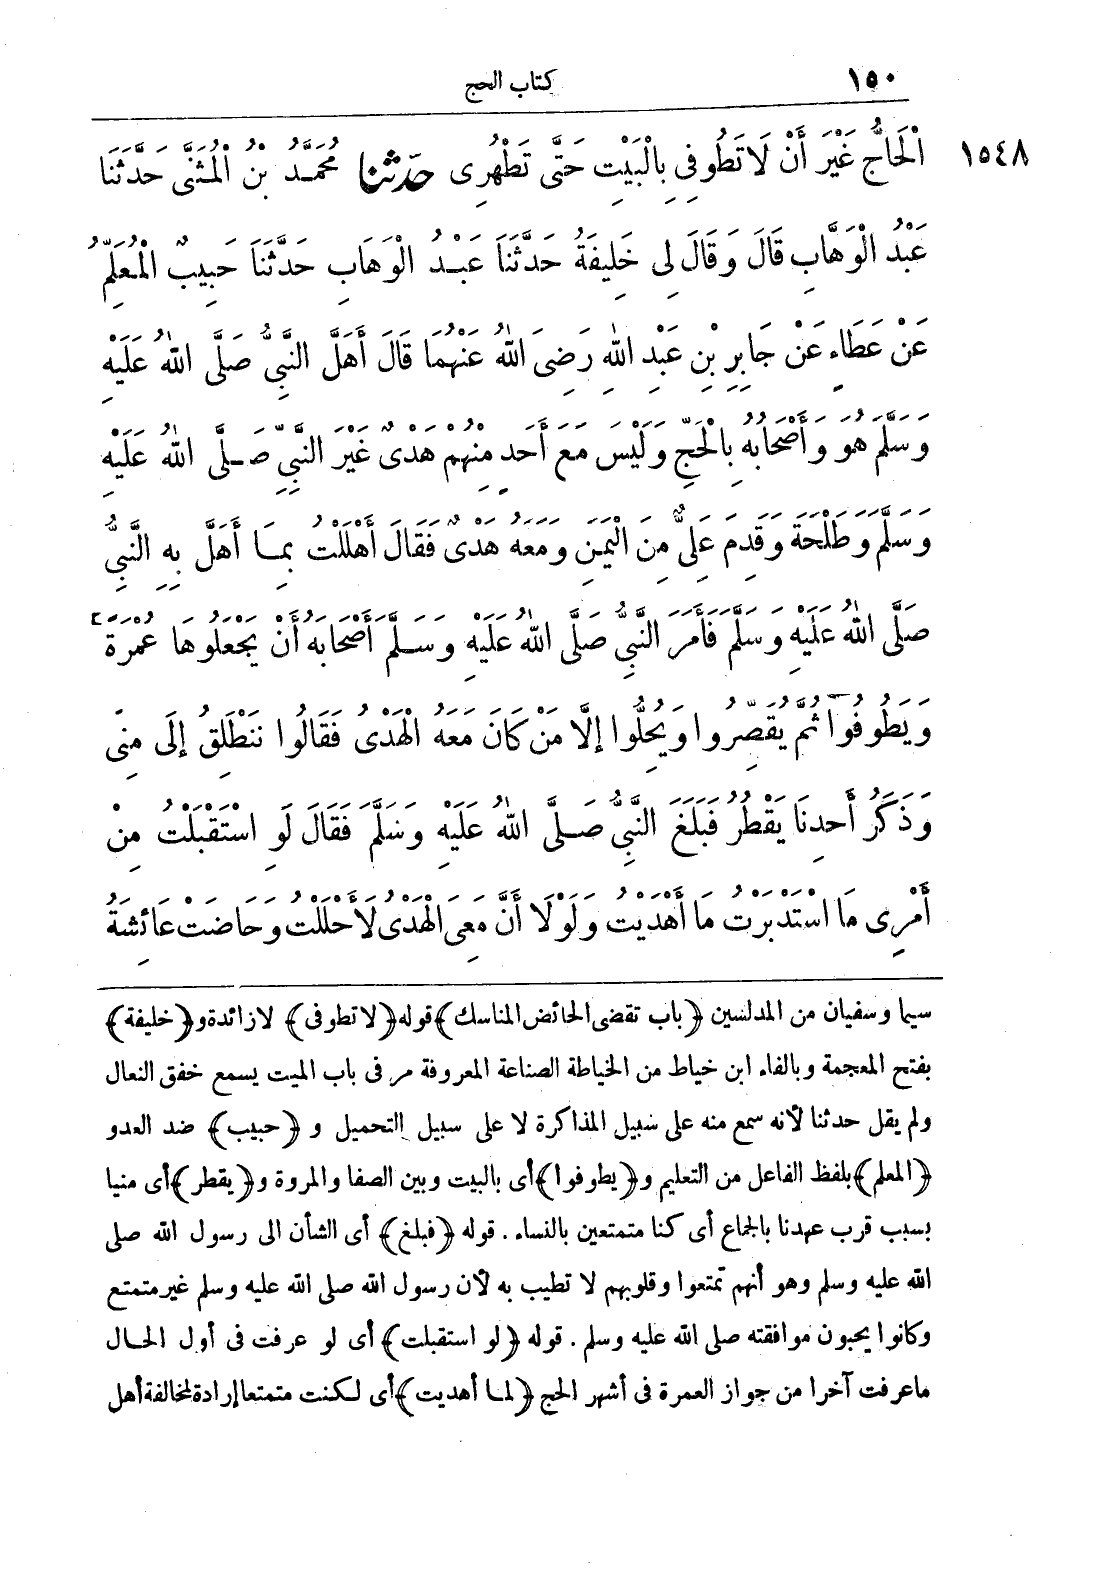 ١٥٠ كتاب الحج
١٥٤٨ الْحَاجُّ غَيْرَ أَنْ لَا تَطُوفِى بِالْبَيْتِ حَتَّى تَطْهُرِى حَدَّثَنَا مُحَمَّدُ بْنُ الْمُثَنَّى حَدَّثَنَا
عَبْدُ الْوَهَّابِ قَالَ وَقَالَ لِى خَلِيفَةُ حَدَّثَنَا عَبْدُ الْوَهَّابِ حَدَّثَنَا حَبِيبٌ الْمُعَلِّمُ
عَنْ عَطَاءٍ عَنْ جَابِرِ بْنِ عَبْدِ اللهِ رَضِىَ اللهُ عَنْهُمَا قَالَ أَهَلَّ النَّبِىُّ صَلَّى اللهُ عَلَيْهِ
وَسَلَّمَ هُوَ وَأَصْحَابُهُ بِالْحَجِّ وَلَيْسَ مَعَ أَحَدٍ مِنْهُمْ هَدْىٌ غَيْرَ النَّبِىِّ صَلَّى اللهُ عَلَيْهِ
وَسَلَّمَ وَطَلْحَةَ وَقَدِمَ عَلِىٌّ مِنَ الْيَمَنِ وَمَعَهُ هَدْىٌ فَقَالَ أَهْلَلْتُ بِمَا أَهَلَّ بِهِ النَّبِىُّ
صَلَّى اللهُ عَلَيْهِ وَسَلَّمَ فَأَمَرَ النَّبِىُّ صَلَّى اللهُ عَلَيْهِ وَسَلَّمَ أَصْحَابَهُ أَنْ يَجْعَلُوهَا عُمْرَةً
وَيَطُوفُوا ثُمَّ يُقَصِّرُوا وَيَحِلُّوا إِلَّا مَنْ كَانَ مَعَهُ الْهَدْىُ فَقَالُوا نَنْطَلِقُ إِلَى مِنًى
وَذَكَرُ أَحَدِنَا يَقْطُرُ فَبَلَغَ النَّبِىَّ صَلَّى اللهُ عَلَيْهِ وَسَلَّمَ فَقَالَ لَوِ اسْتَقْبَلْتُ مِنْ
أَمْرِى مَا اسْتَدْبَرْتُ مَا أَهْدَيْتُ وَلَوْلَا أَنَّ مَعِىَ الْهَدْىَ لَأَحْلَلْتُ وَحَاضَتْ عَائِشَةُ
سيما وسفيان من المدلسين ﴿باب تقضى الحائض المناسك﴾ قوله ﴿لا تطوفى﴾ لا زائدة و﴿خليفة﴾
بفتح المعجمة وبالفاء ابن خياط من الخياطة الصناعة المعروفة مر فى باب الميت يسمع خفق النعال
ولم يقل حدثنا لأنه سمع منه على سبيل المذاكرة لا على سبيل التحميل و﴿حبيب﴾ ضد العدو
﴿المعلم﴾ بلفظ الفاعل من التعليم و﴿يطوفوا﴾ أى بالبيت وبين الصفا والمروة و﴿يقطر﴾ أى منيا
بسبب قرب عهدنا بالجماع أى كنا متمتعين بالنساء . قوله ﴿فبلغ﴾ أى الشأن الى رسول الله صلى
الله عليه وسلم وهو أنهم تمتعوا وقلوبهم لا تطيب به لأن رسول الله صلى الله عليه وسلم غير متمتع
وكانوا يحبون موافقته صلى الله عليه وسلم . قوله ﴿لو استقبلت﴾ أى لو عرفت فى أول الحال
ما عرفت آخرا من جواز العمرة فى أشهر الحج ﴿لما أهديت﴾ أى لكنت متمتعا إرادة لمخالفة أهل